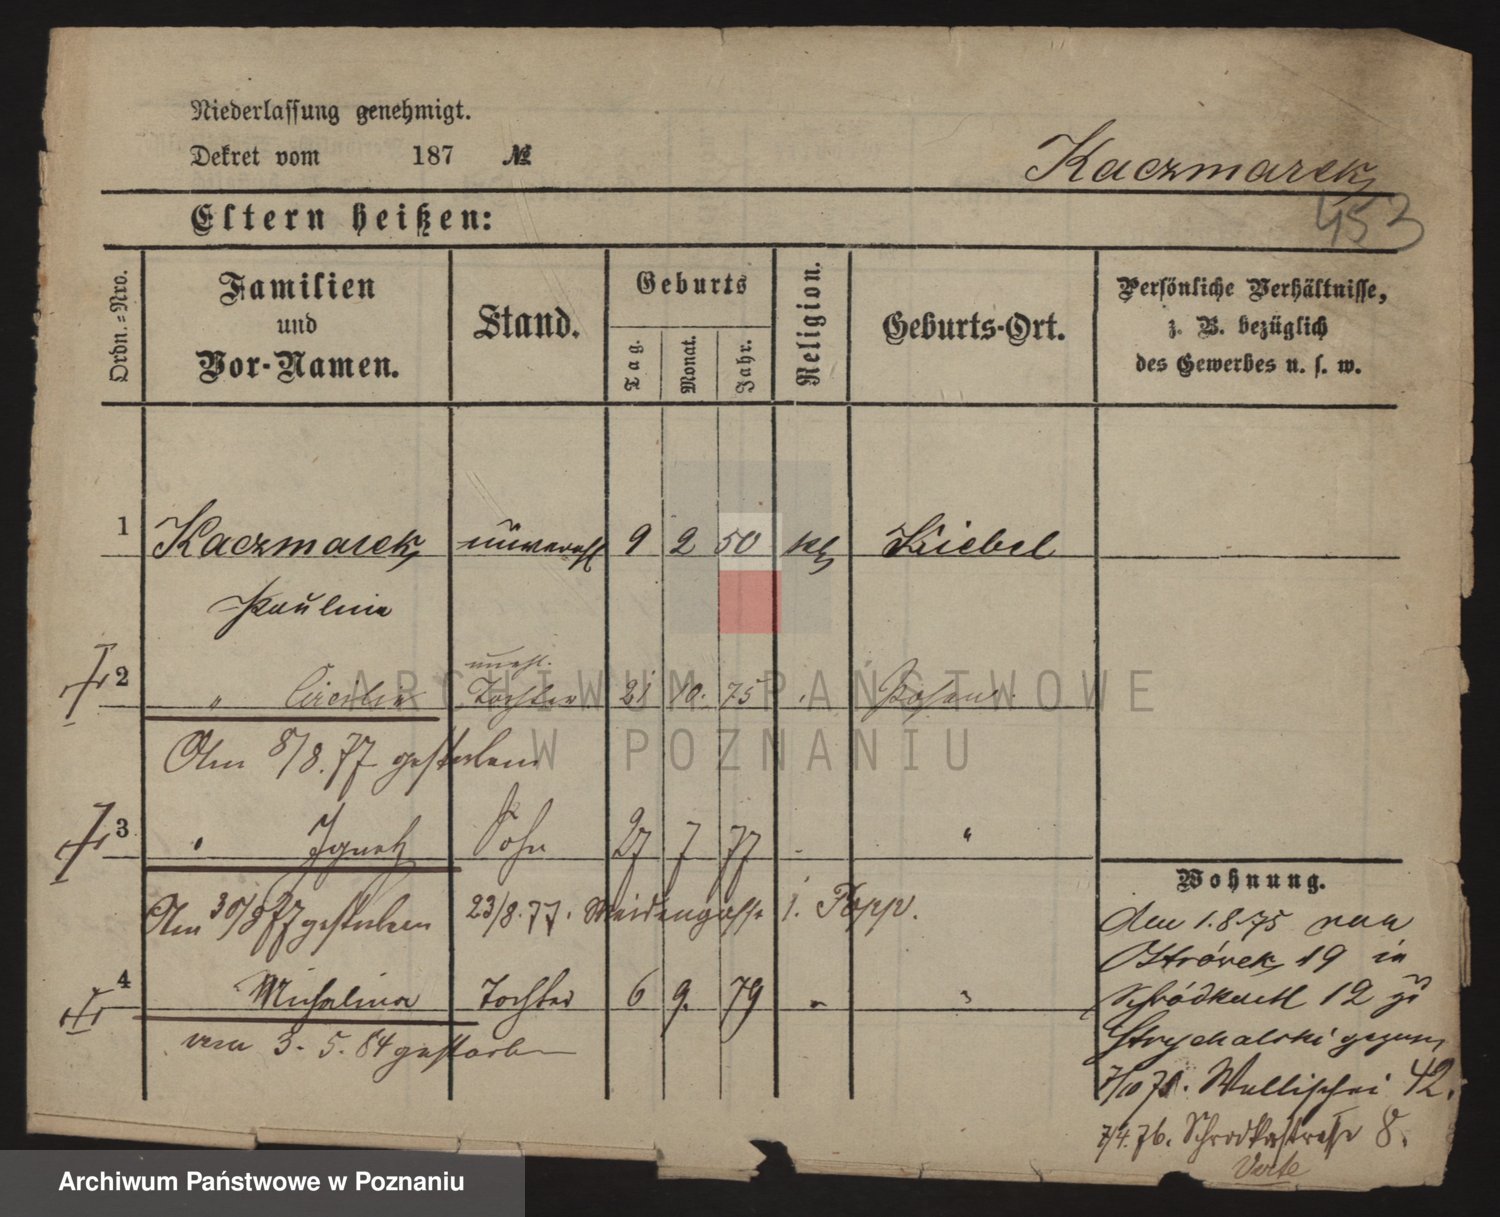 Niederlassung genehmigt.
Dekret vom 187 №
Kaczmarek
453
Eltern heißen:
Ordn.-Nro.
Familien und Vor-Namen.
Stand.
Geburts
Tag.
Monat.
Jahr.
Religion.
Geburts-Ort.
Persönliche Verhältnisse, z. B. bezüglich des Gewerbes u. s. w.
1 Kaczmarek unverehl 9 2 50 kth Kiebel
Paulina
unehl.
2 " Tochter 21 10. 75 Posen
Am 8/8. 77 gestorben
3 " Ignatz Sohn 27 7 77 "
Am 30/8 77 gestorben 23/8. 77. Weidengasse 1. Popp.
4 Michalina Tochter 6 9. 79 " "
am 3. 5. 84 gestorben
Wohnung.
Am 1.8.75 von
Ostrówek 19 in
Schródkactl 12 zu
Strychalski gezogen
7/10 75. Wallischei 42.
7/4. 76. Schrodkastraße 8.
Verte
ARCHIWUM PAŃSTWOWE
W POZNANIU
Archiwum Państwowe w Poznaniu